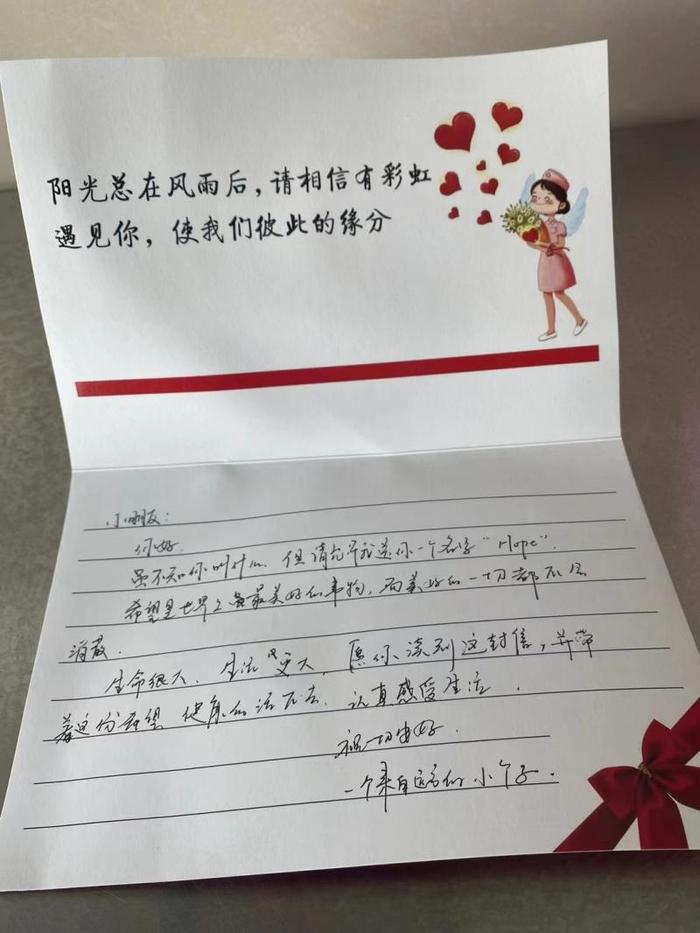 阳光总在风雨后,请相信有彩虹
遇见你,使我们彼此的缘分
小朋友:
你好.
虽不知你叫什么,但请允许我送你一个名字“Hope”.
希望是世界上最最美好的事物,而美好的一切都不会
消散.
生命很大,生活更大,愿你读到这封信,并带
着这份希望健康的活下去,认真感受生活.
祝一切安好.
一个来自远方的小个子.